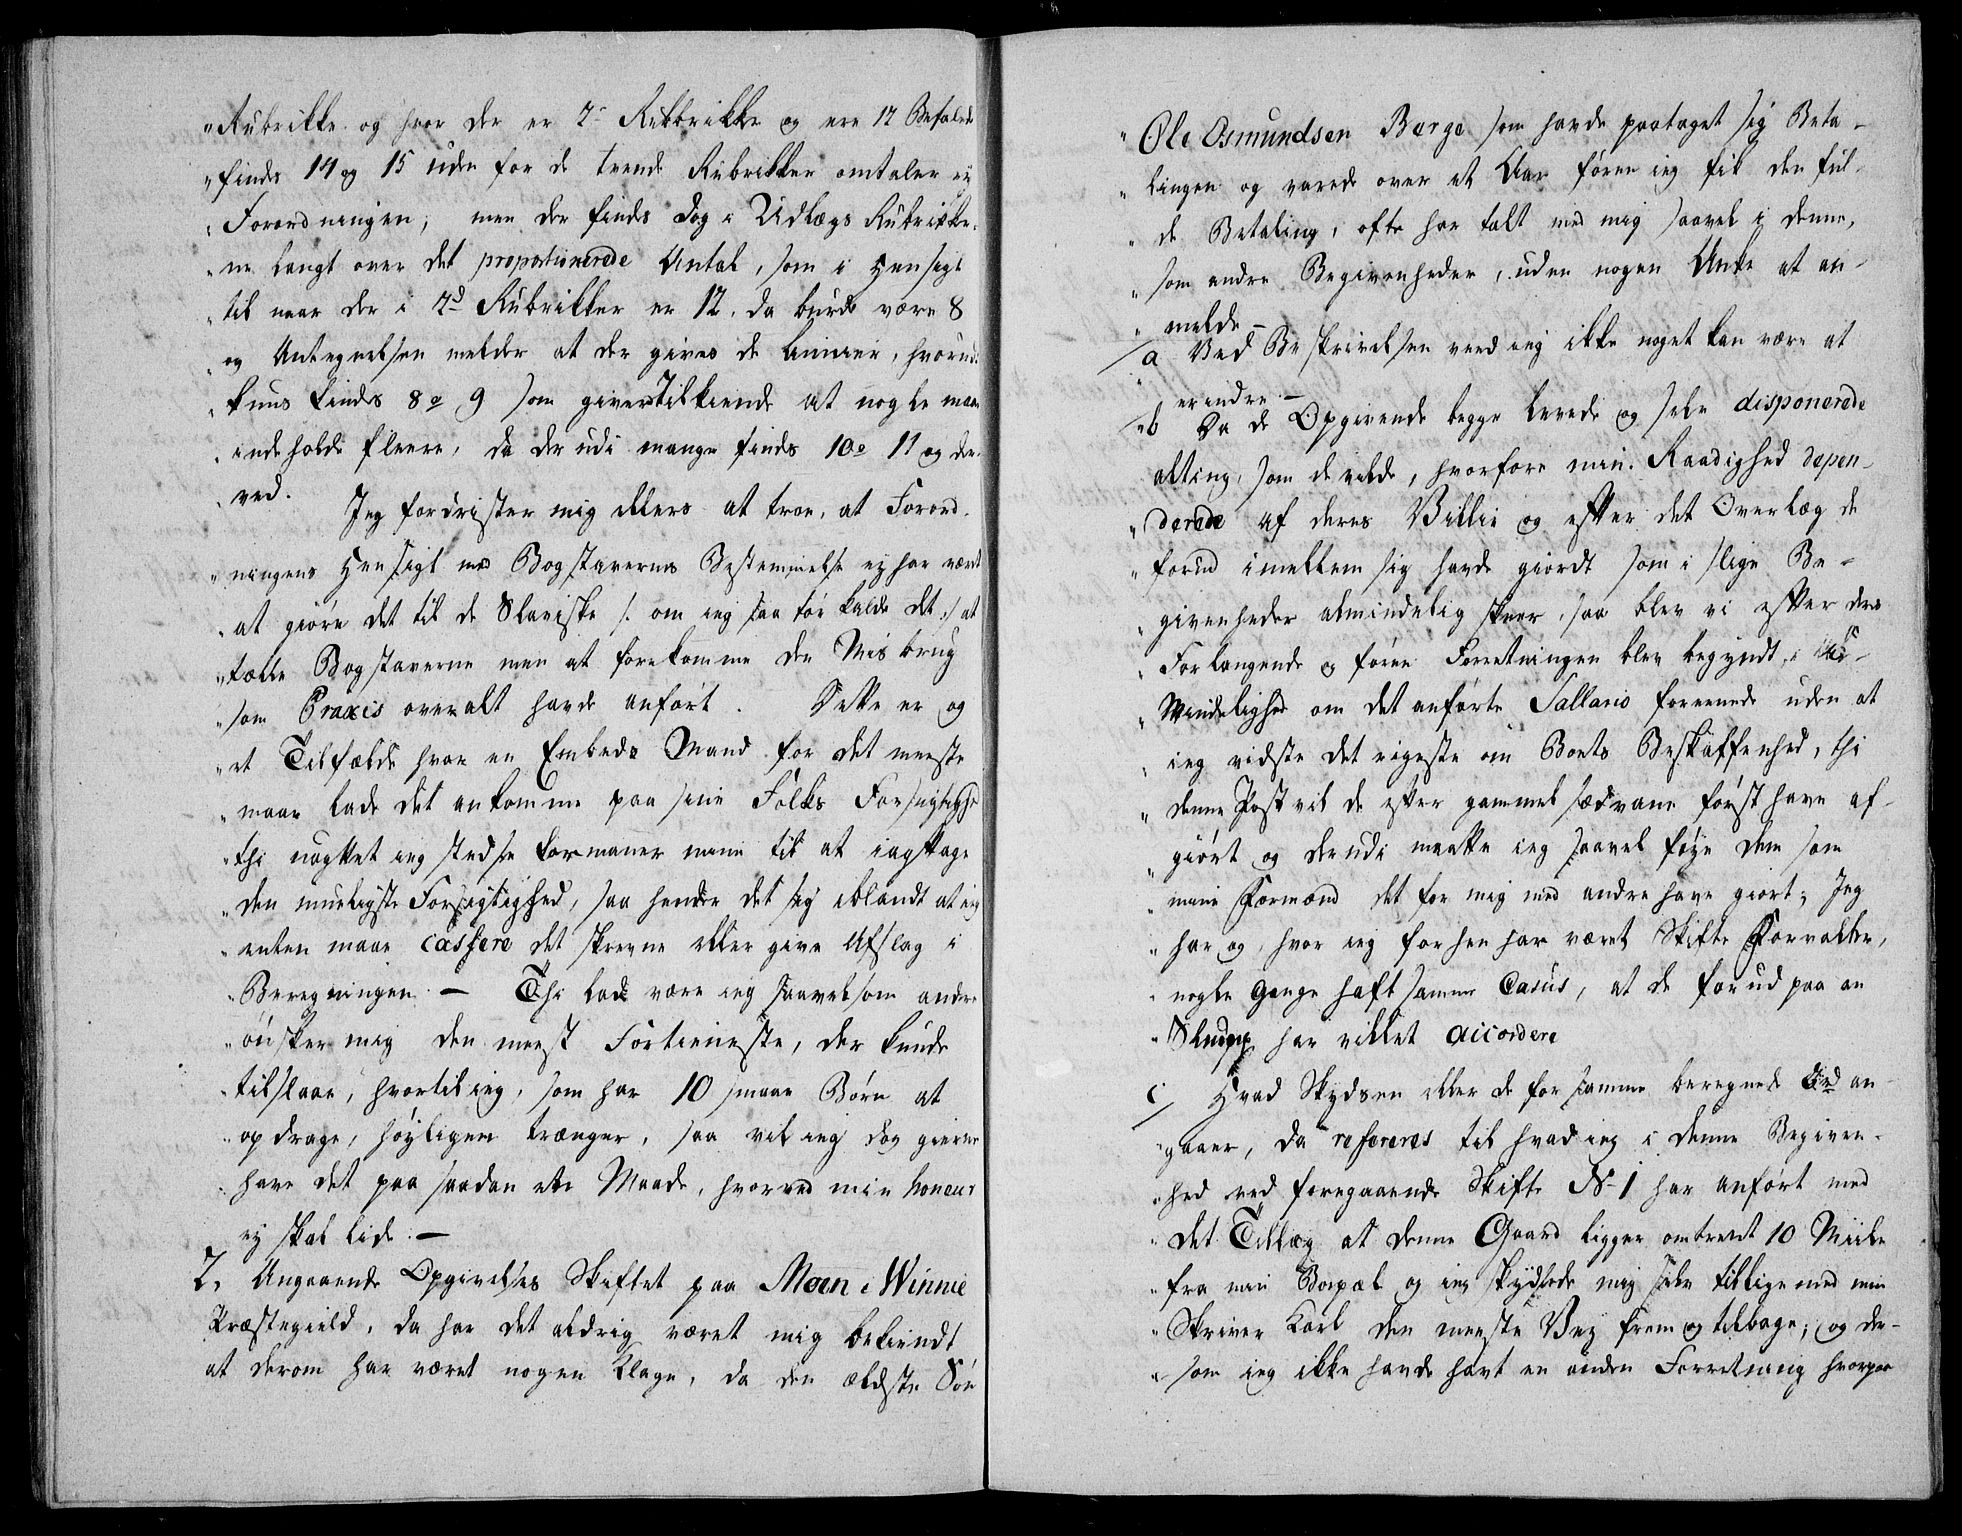 "Rubrikke og hvor der er 2de Rubbrikke og ere 12 Befalede
"findes 14 og 15 uden for de trende Rubrikker omtaler ey
"Forordningen, men der findes dog i Udlægs Rubrikker-
"ne langt over det proportionerede Antal, som i Hensigt
"til naar der i 2de Rubrikker er 12, da burde være 8
"og Antegnelsen melder at der gives de Linier, hvorudi
"kuns findes 8 a 9 som giver Tilkiende at nogle maae
"indeholde fleere, da der udi mange findes 10 a 11 og der-
"ved. Jeg fordrister mig ellers at troe, at Forord-
"ningens Hensigt med Bogstavernes Bestemmelse ey har været
"at giøre det til de Slaviske /: om ieg saa tør kalde det :/ at
"tælle Bogstaverne men at forekomme den Misbrug
"som Praxis overalt havde anført. Dette er og
"et Tilfælde hvor en Embeds Mand for det meeste
"maae lade det ankomme paa sine Folks Forsigtighed
"thi uagtet ieg stedse formaner mine til at iagttage
"den mueligste Forsigtighed, saa hender det sig iblandt at ieg
"enten maae cassere det skrevne eller give Afslag i
"Beregningen. — Thi lad være ieg saavelsom andre
"ønsker mig den meest Fortieneste, der kunde
"tilslaae, hvortil ieg, som har 10 smaae Børn at
"opdrage, høyligen trænger, saa vil ieg dog gierne
"have det paa saadan en Maade, hvorved min honeur
"ey skal lide. —
2, Angaaende Opgivelses Skiftet paa Moen i Winnie
Præstegield, da har det aldrig været mig bekiendt
at derom har været nogen Klage, da den ældste Søn
"Ole Osmundsen Berge som havde paataget sig Beta-
"lingen og varede over et Aar førend ieg fik den ful-
"de Betaling, ofte har talt med mig saavel i denne,
"som andre Begivenheder, uden nogen Anke at an-
"melde —
"/a Ved Beskrivelsen veed ieg ikke noget kan være at
erindre —
"/b Da de Opgivende begge levede og selv disponerede
alting, som de vilde, hvorfore min Raadighed depen-
"derede af deres Villie og efter det Overlæg de
"forud imellem sig havde giordt som i slige Be-
"givenheder almindelig skeer, saa blev vi efter deres
"Forlangende og førend Forretningen blev begyndt, i
"Mindelighed om det anførte Sallario foreenede uden at
"ieg vidste det ringeste om Boets Beskaffenhed, thi
"denne Post vil de efter gammel sædvane først have af-
"giørt og derudi maatte ieg saavel føye dem som
"mine Formænd det for mig med andre have giort; Jeg
"har og, hvor ieg forhen har været Skifte Forvalter,
"nogle Gange haft samme Casus, at de forud paa en
"Slump har villet accordere
c/ Hvad Skydsen eller de for samme beregnede an-
"gaaer, da refereres til hvad ieg i denne Begiven-
"hed ved foregaaende Skifte No 1 har anført med
"det Tillæg at denne Gaard ligger omtrent 10 Miile
"fra min Boepæl og ieg skydsede mig selv tillige med min
"Skriver Karl den meeste Vey frem og tilbage; og der-
"som ieg ikke havde havt en anden Forretning hvorpaa